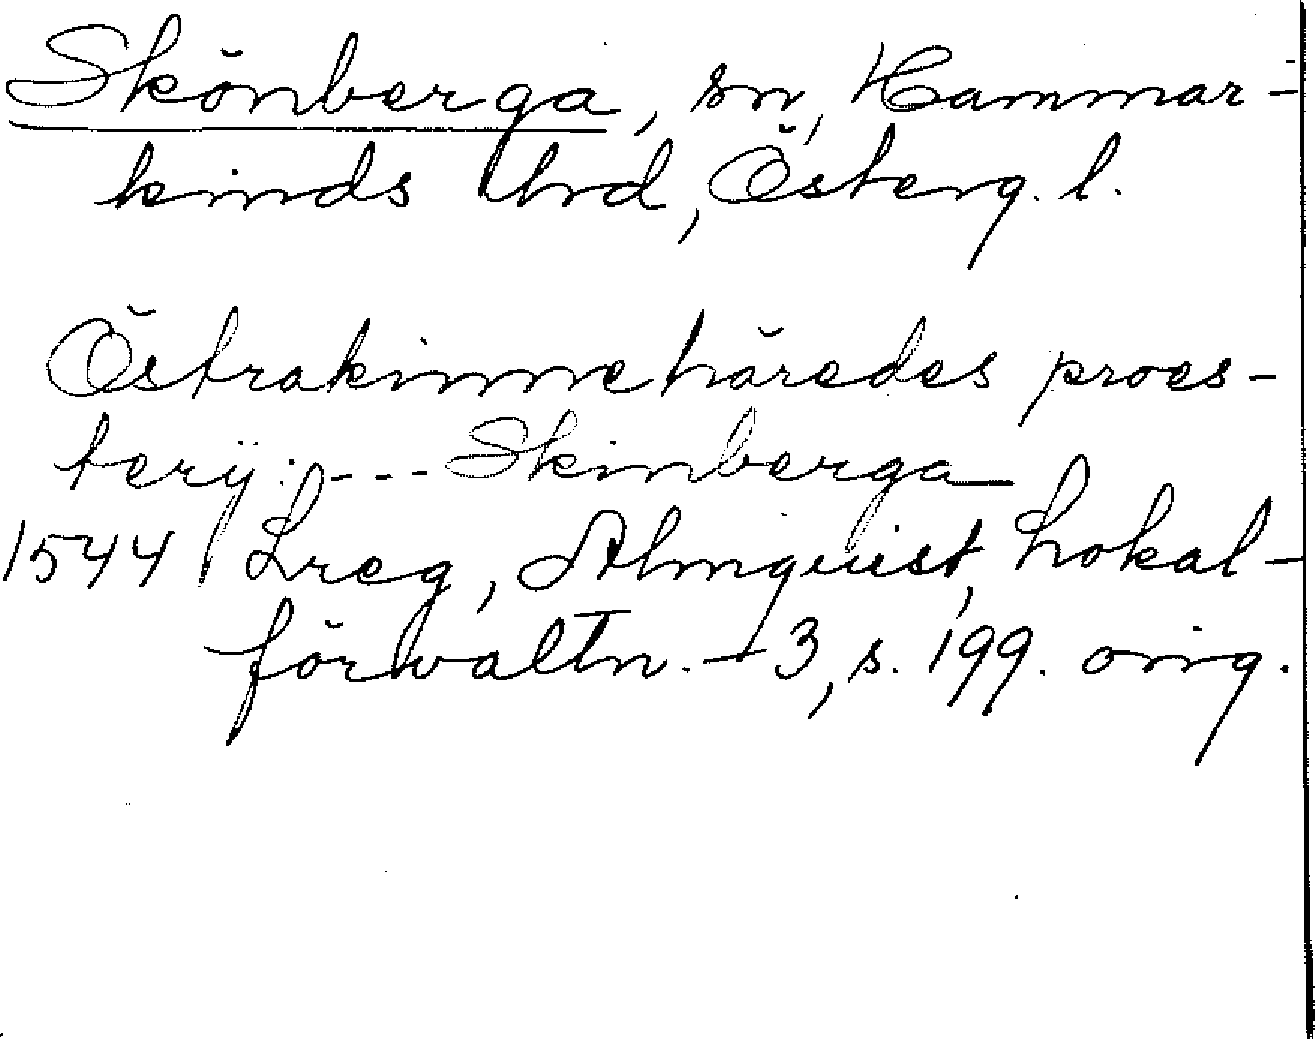 Skönberga, sn, Hammar-
kinds hrd, Österg. l.
Östrakinnehäredes proes-
terij: --- Skinberga
1544 Lreg, Almquist, Lokal-
förvaltn. 3, s. 199. orig.